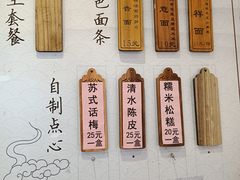 套餐
色面条
香面
15元
意面
祥面
自制点心
苏式话梅
25元
一盒
清水陈皮
25元
一盒
糯米松糕
20元
一盒